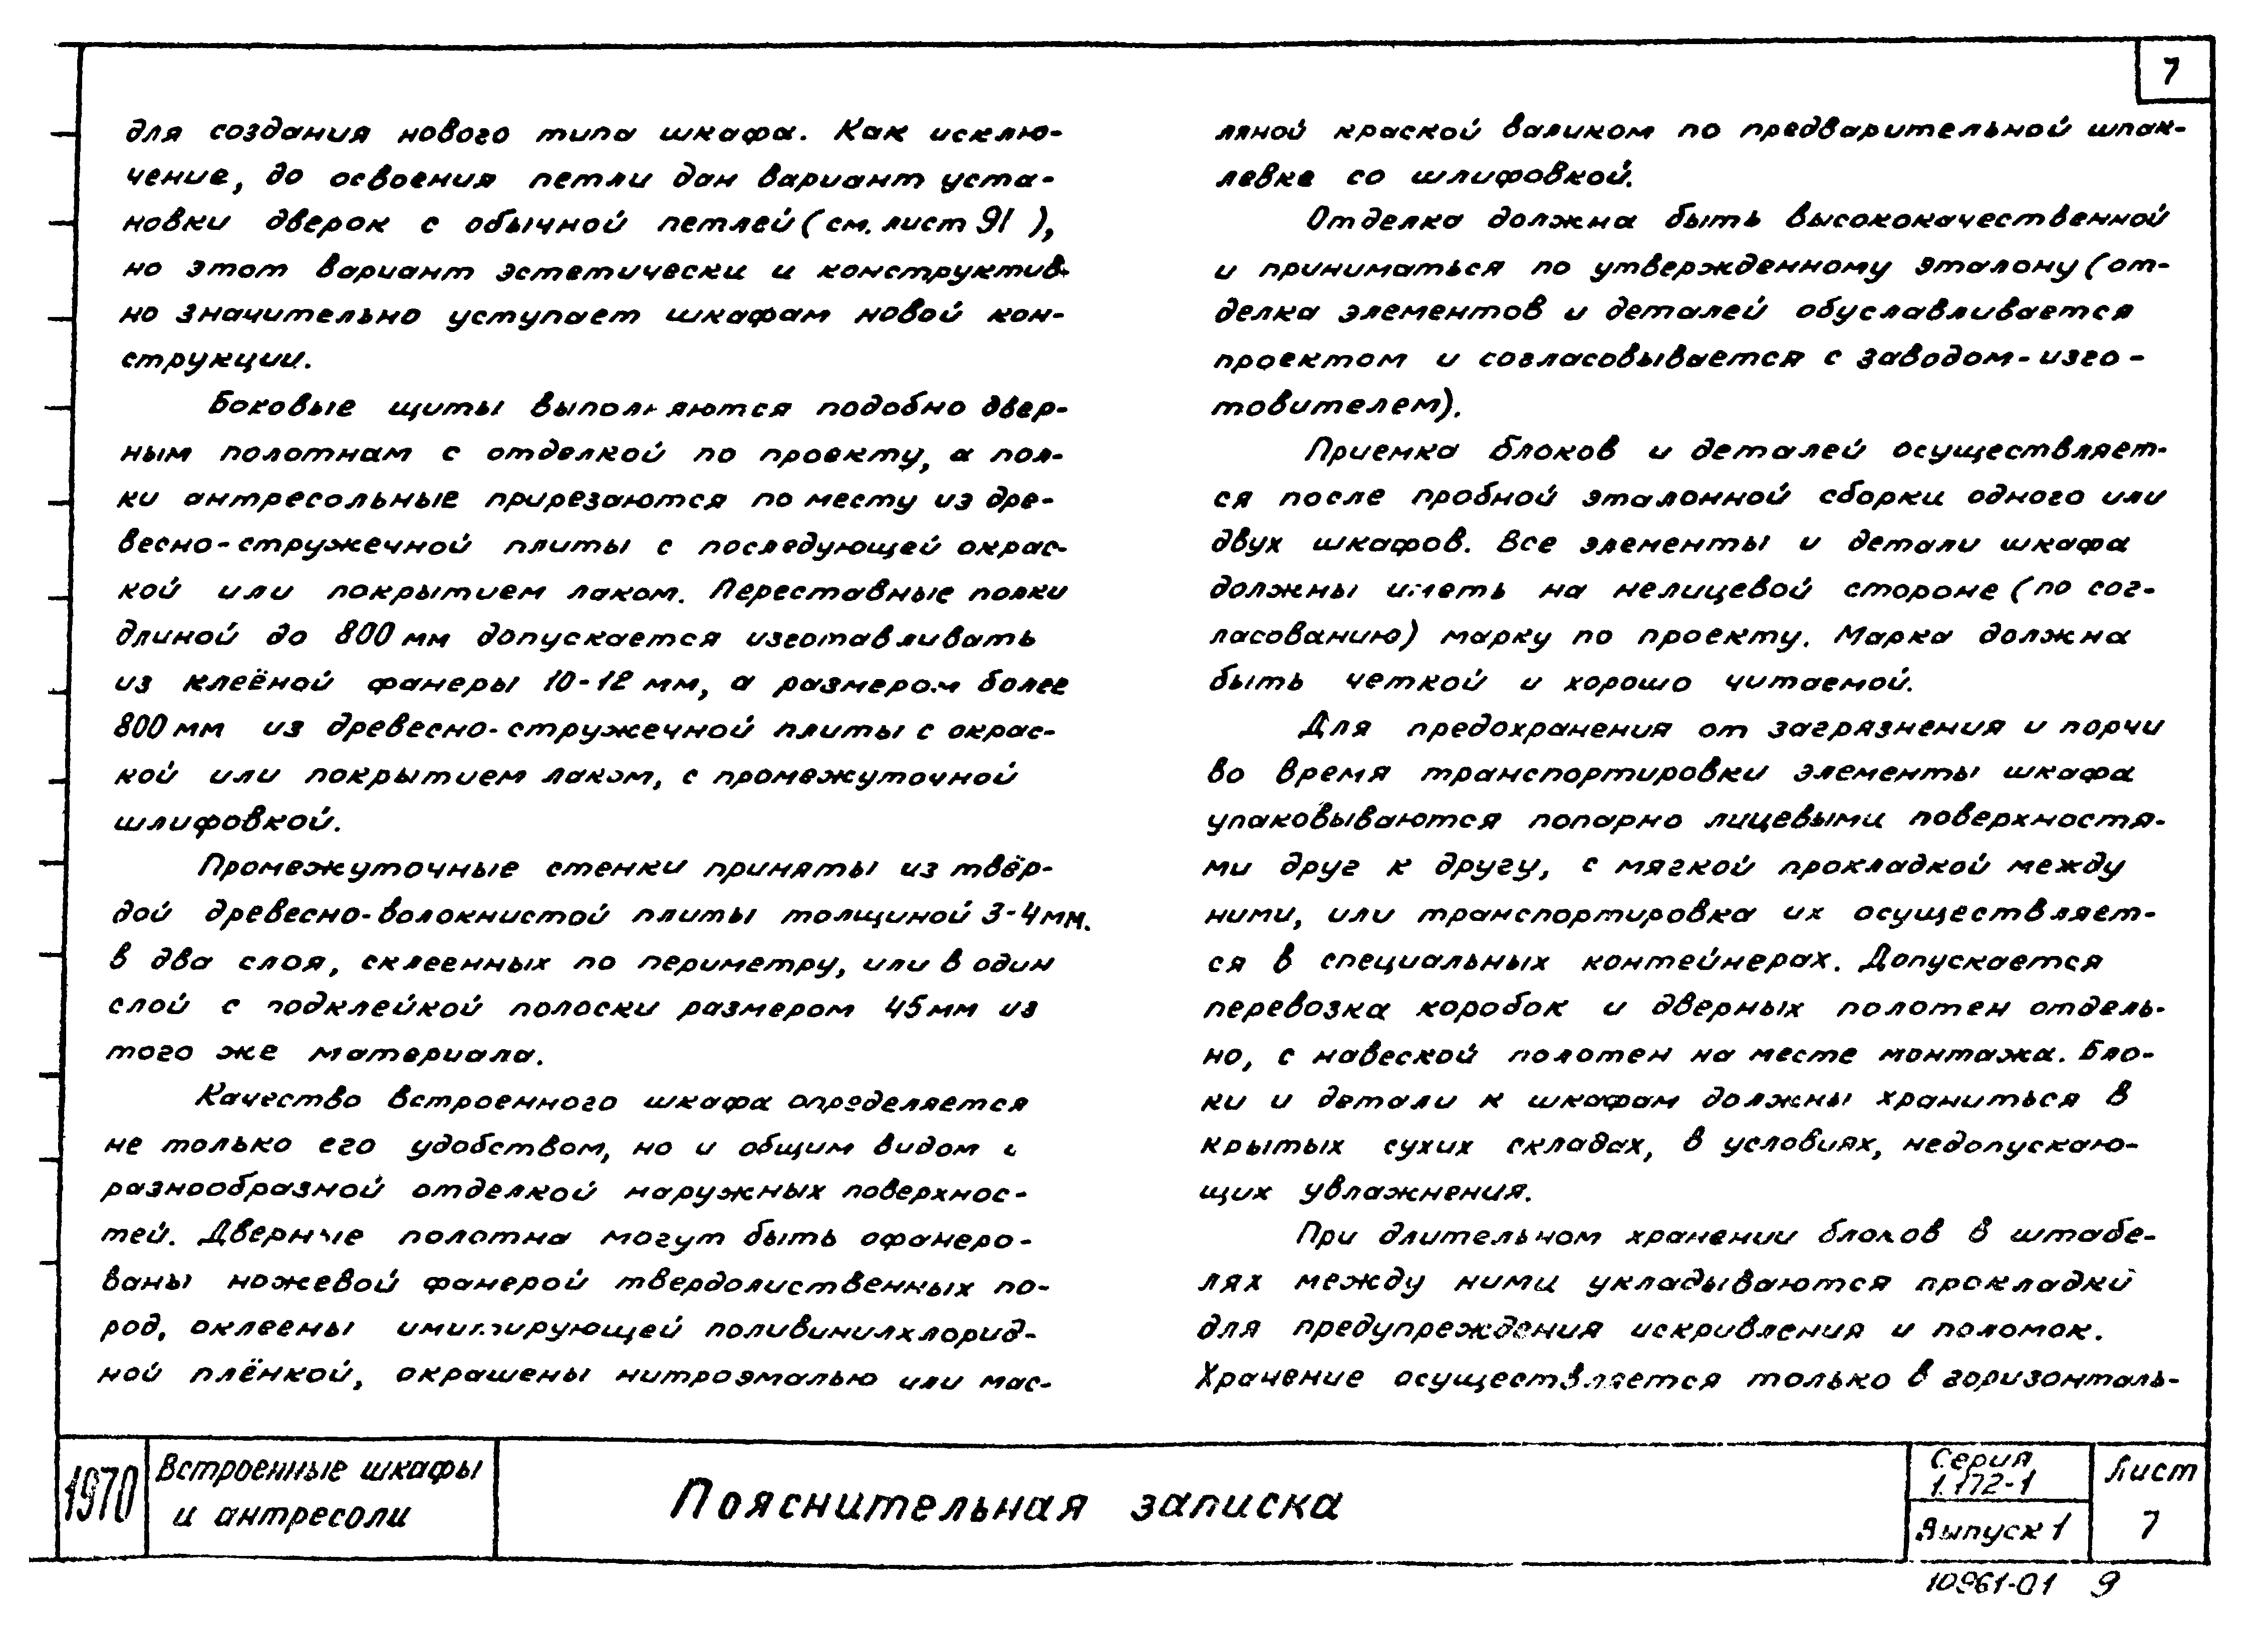 7
для создания нового типа шкафа. Как исклю-
чение, до освоения петли дан вариант уста-
новки дверок с обычной петлей (см. лист 91 ),
но этот вариант эстетически и конструктив-
но значительно уступает шкафам новой кон-
струкции.
Боковые щиты выполняются подобно двер-
ным полотнам с отделкой по проекту, а пол-
ки антресольные прирезаются по месту из дре-
весно-стружечной плиты с последующей окрас-
кой или покрытием лаком. Переставные полки
длиной до 800 мм допускается изготавливать
из клеёной фанеры 10-12 мм, а размером более
800 мм из древесно-стружечной плиты с окрас-
кой или покрытием лаком, с промежуточной
шлифовкой.
Промежуточные стенки приняты из твёр-
дой древесно-волокнистой плиты толщиной 3-4мм.
в два слоя, склеенных по периметру, или в один
слой с подклейкой полоски размером 45мм из
того же материала.
Качество встроенного шкафа определяется
не только его удобством, но и общим видом и
разнообразной отделкой наружных поверхнос-
тей. Дверные полотна могут быть офанеро-
ваны ножевой фанерой твердолиственных по-
род, оклеены имитирующей поливинилхлорид-
ной плёнкой, окрашены нитроэмалью или мас-
ляной краской валиком по предварительной шпак-
левке со шлифовкой.
Отделка должна быть высококачественной
и приниматься по утвержденному эталону (от-
делка элементов и деталей обуславливается
проектом и согласовывается с заводом-изго-
товителем).
Приемка блоков и деталей осуществляет-
ся после пробной эталонной сборки одного или
двух шкафов. Все элементы и детали шкафа
должны иметь на нелицевой стороне (по сог-
ласованию) марку по проекту. Марка должна
быть четкой и хорошо читаемой.
Для предохранения от загрязнения и порчи
во время транспортировки элементы шкафа
упаковываются попарно лицевыми поверхностя-
ми друг к другу, с мягкой прокладкой между
ними, или транспортировка их осуществляет-
ся в специальных контейнерах. Допускается
перевозка коробок и дверных полотен отдель-
но, с навеской полотен на месте монтажа. Бло-
ки и детали к шкафам должны храниться в
крытых сухих складах, в условиях, недопускаю-
щих увлажнения.
При длительном хранении блоков в штабе-
лях между ними укладываются прокладки
для предупреждения искривления и поломок.
Хранение осуществляется только в горизонталь-
1970
Встроенные шкафы
и антресоли
Пояснительная записка
Серия
1.172-1
Выпуск 1
Лист
7
10961-01 9